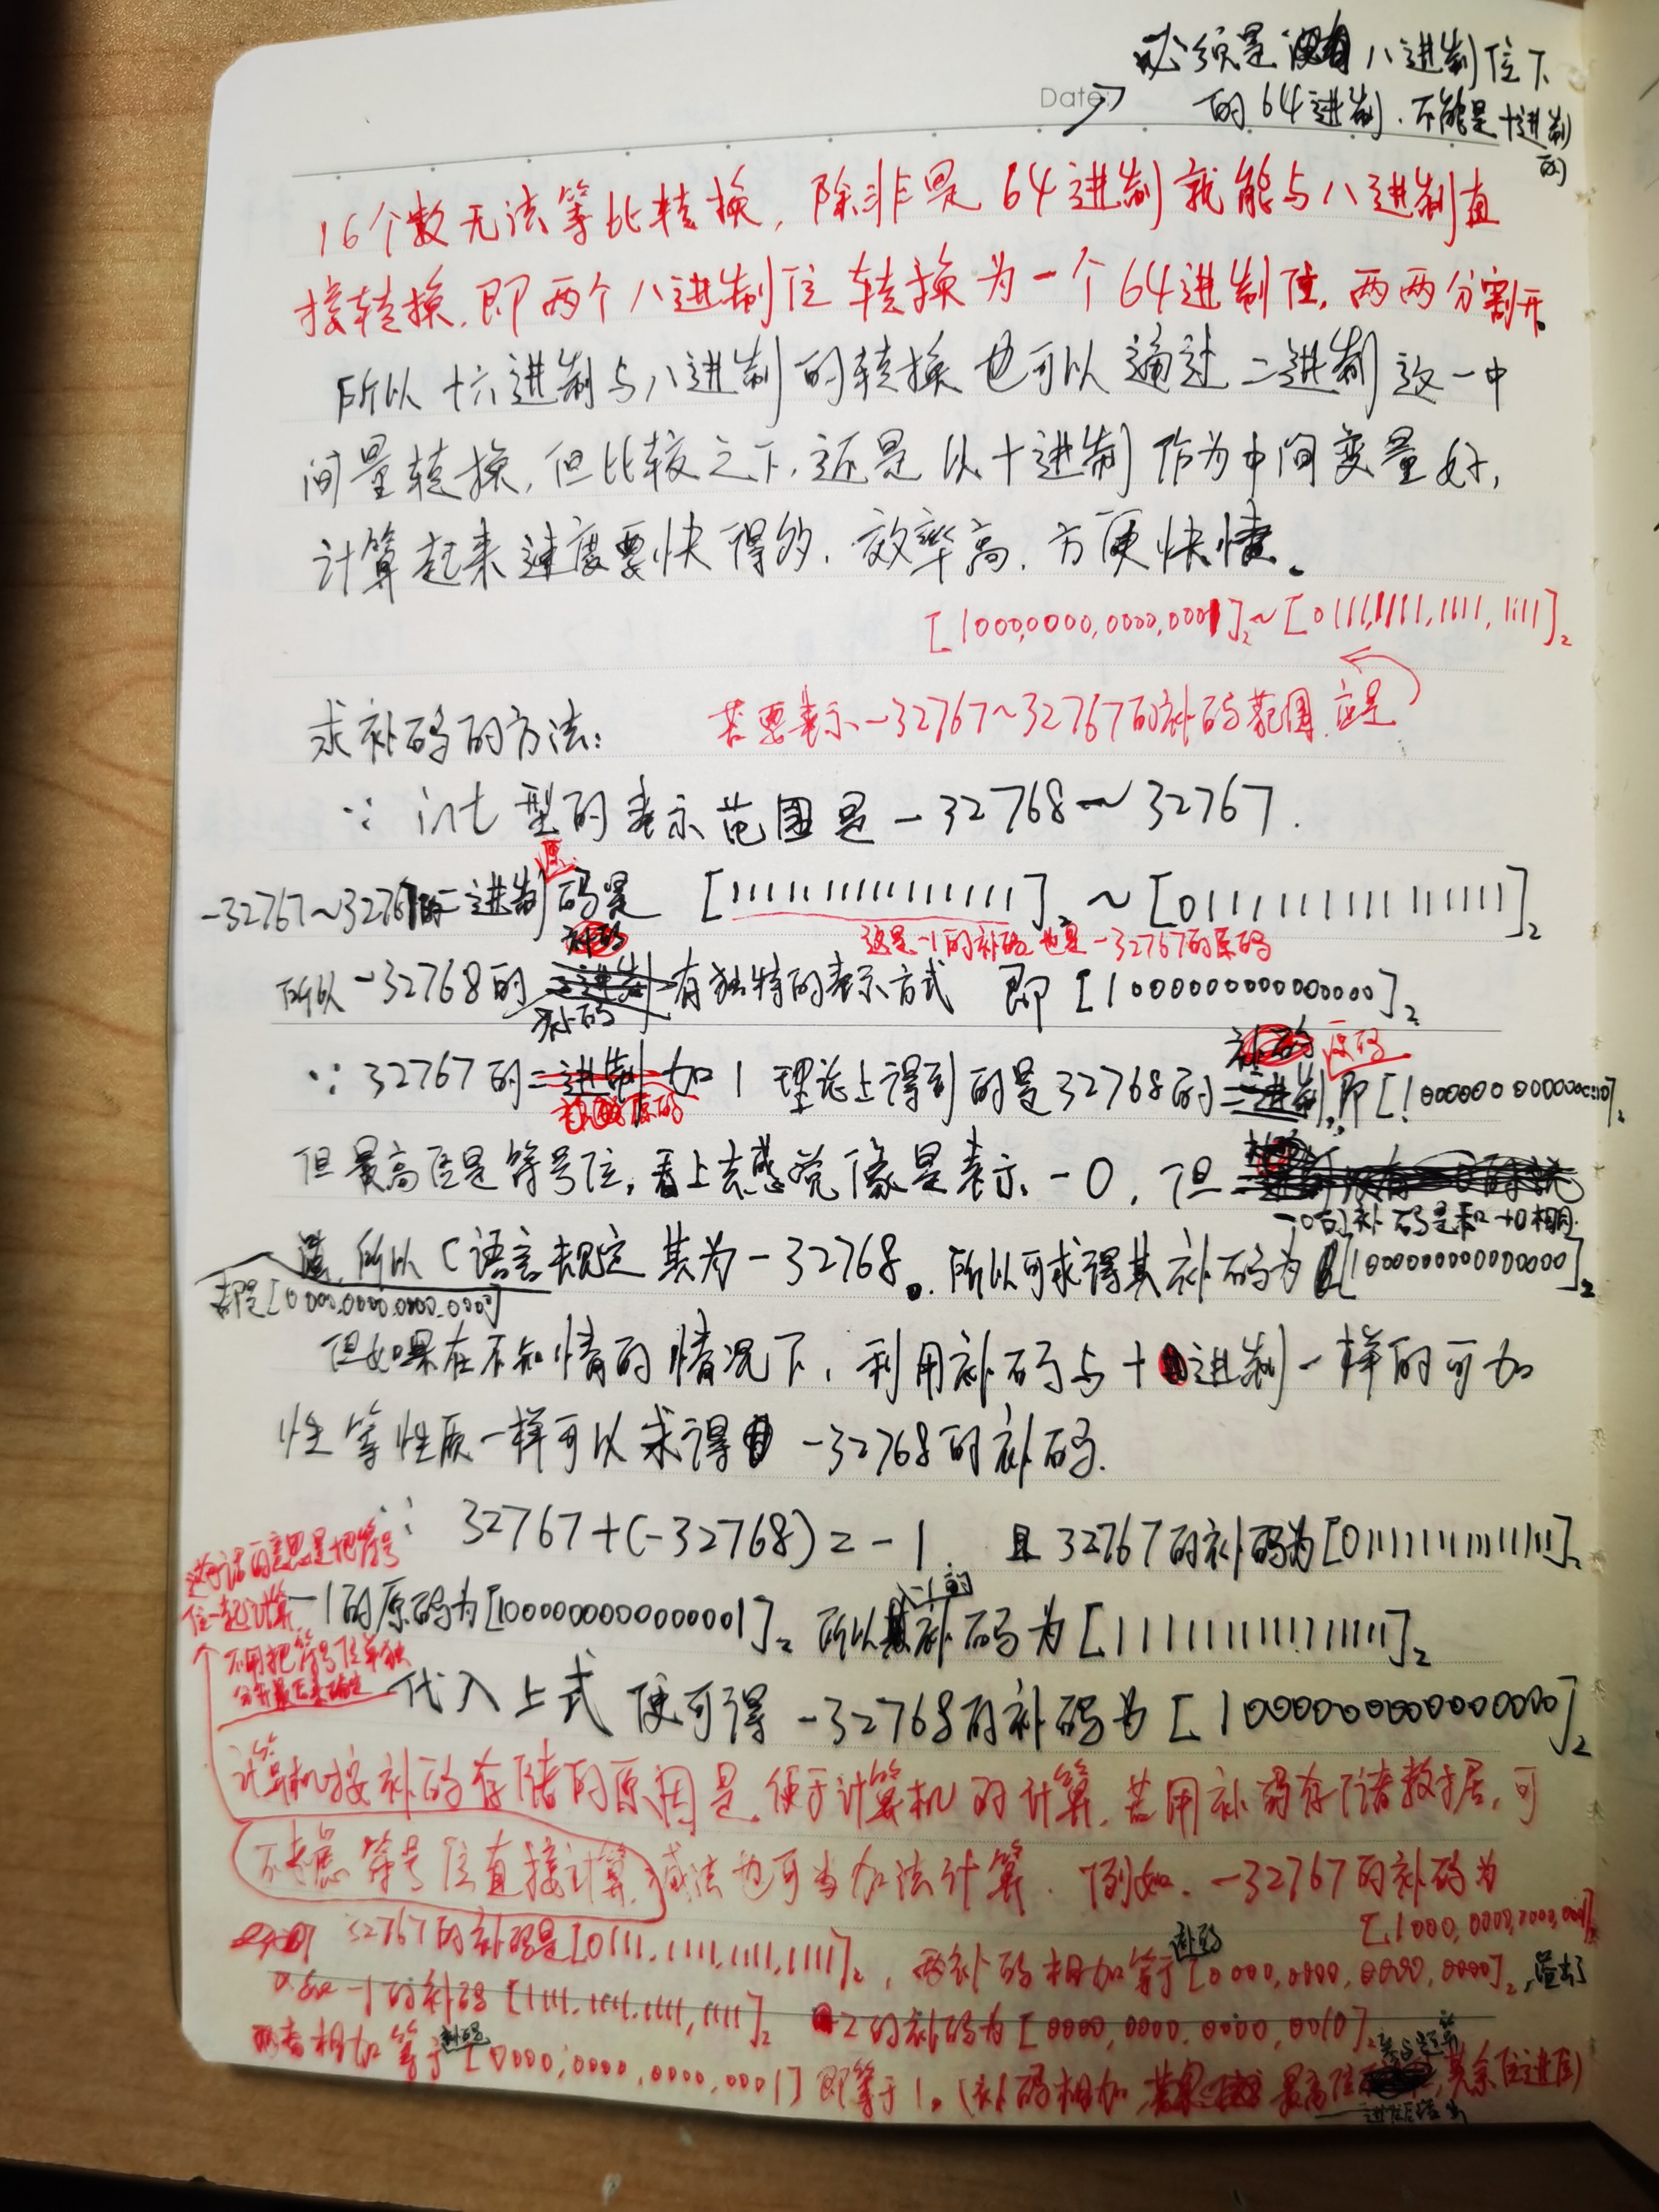 必须是 八进制位下
Date
的64进制.不能是十进制
的
16个数无法等比转换,除非是64进制就能与八进制直
接转换.即两个八进制位转换为一个64进制位,两两分割开.
所以十六进制与八进制的转换也可以通过二进制这一中
间量转换,但比较之下,还是以十进制作为中间变量好,
计算起来速度要快得多.效率高.方便快捷。
[1000,0000,0000,0001]₂~[0111,1111,1111,1111]₂
若要表示-32767~32767的补码范围.应是
求补码的方法:
∵ int型的表示范围是-32768~32767.
-32767~32767的二进制原码是 [1111111111111111]₂ ~ [0111111111111111]₂
这是-1的补码 也是-32767的原码
所以-32768的 有独特的表示方式 即 [1000000000000000]₂
补码
原码
∵ 32767的 加1理论上得到的是32768的 即
原码
但最高位是符号位,看上去感觉像是表示-0,但
-0的补码是和+0相同.
所以C语言规定其为-32768。所以可求得其补码为[1000000000000000]₂
都是[0000,0000,0000,0000]
但如果在不知情的情况下,利用补码与十进制一样的可加
性等性质一样可以求得 -32768的补码.
∵ 32767+(-32768)=-1. 且32767的补码为[0111111111111111]₂
这句话的意思是把符号
位一起计算
-1的原码为[1000000000000001]₂ 所以-1的补码为[1111111111111111]₂
不用把符号位单独
代入上式 便可得 -32768的补码为[1000000000000000]₂
计算机按补码存储的原因是.便于计算机的计算.若用补码存储数据,可
不考虑符号位直接计算,减法也可当加法计算.例如.-32767的补码为
[1000,0000,0000,0001]₂
32767的补码是[0111,1111,1111,1111]₂,两补码相加等于补码[0000,0000,0000,0000]₂,溢出了
-1的补码[1111,1111,1111,1111]₂ 2的补码为[0000,0000,0000,0010]₂
两者相加等于补码[0000,0000,0000,0001]即等于1。(补码相加, 最高位 ,其余位进位)